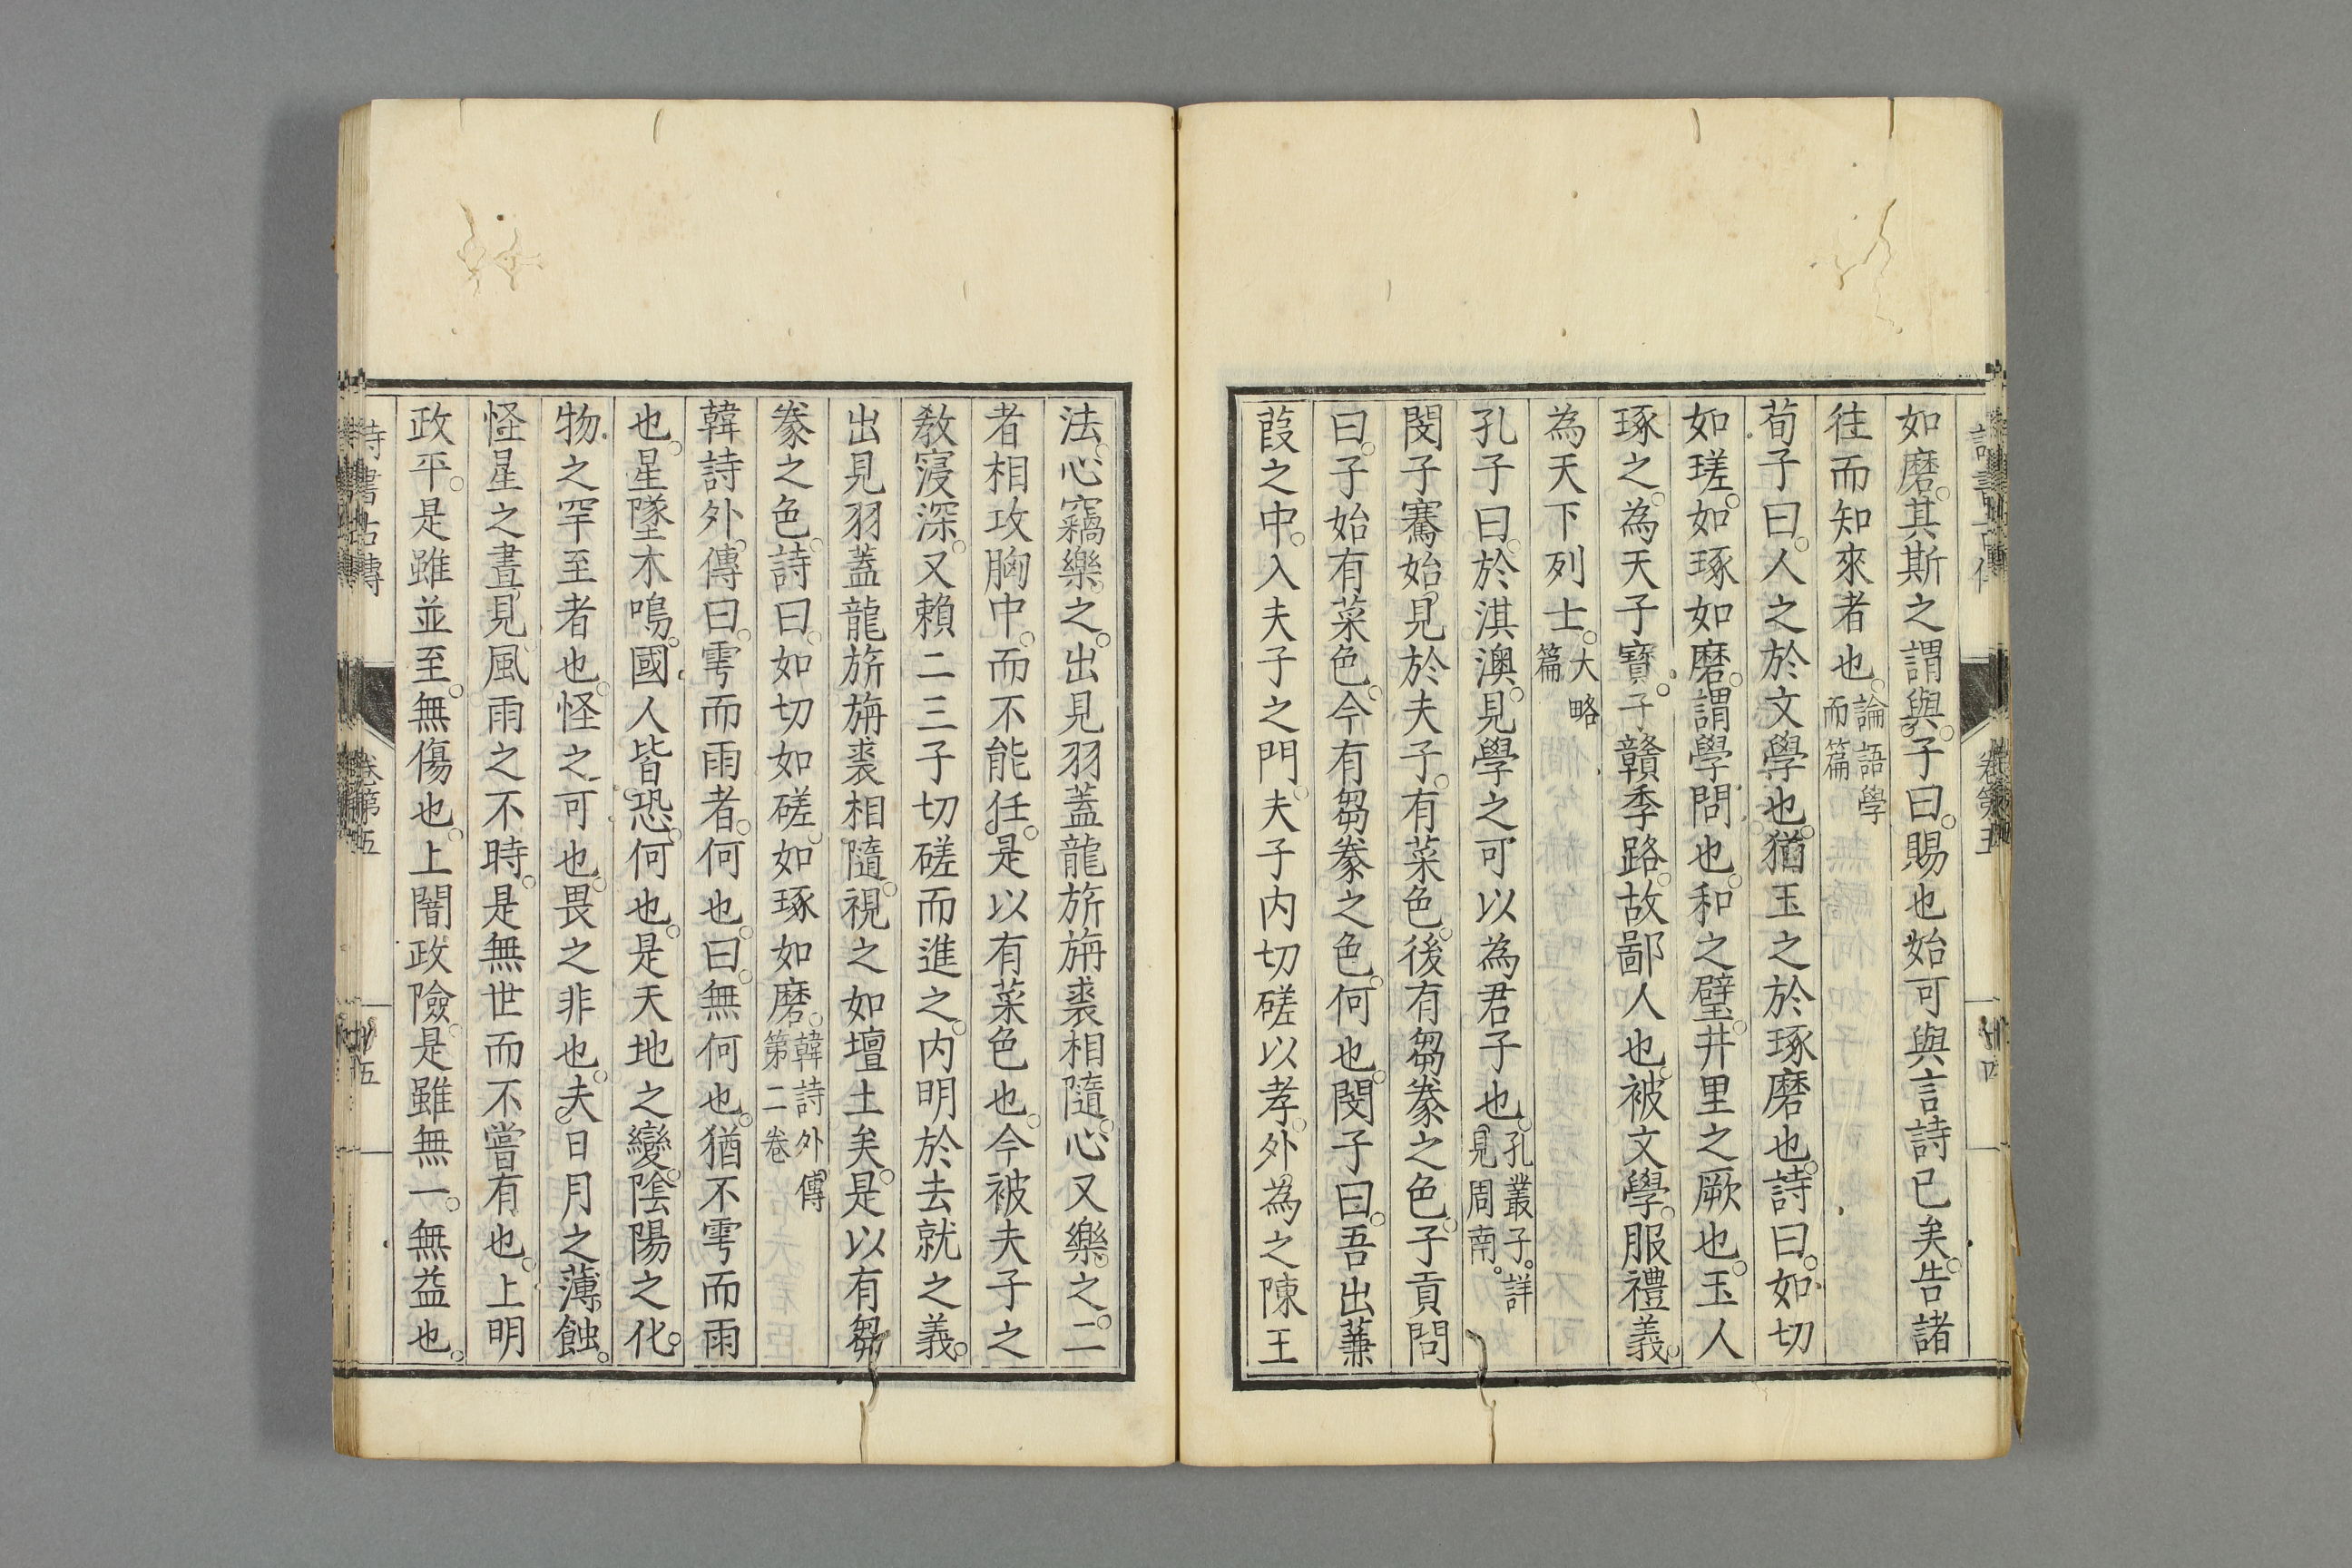 如磨。其斯之謂與。子曰。賜也始可與言詩已矣。告諸
往而知來者也。論語學而篇
荀子曰。人之於文學也。猶玉之於琢磨也。詩曰。如切
如瑳。如琢如磨。謂學問也。和之璧。井里之厥也。玉人
琢之。為天子寶。子贛季路。故鄙人也。被文學。服禮義。
為天下列士。大略篇
孔子曰。於淇澳。見學之可以為君子也。孔叢子。詳見周南。
閔子騫始見於夫子。有菜色。後有芻豢之色。子貢問
曰。子始有菜色。今有芻豢之色。何也。閔子曰。吾出蒹
葭之中。入夫子之門。夫子内切磋以孝。外為之陳王
法。心竊樂之。出見羽蓋龍旂旃裘相隨。心又樂之。二
者相攻胸中。而不能任。是以有菜色也。今被夫子之
教寖深。又賴二三子切磋而進之。内明於去就之義。
出見羽蓋龍旂旃裘相隨。視之如壇土矣。是以有芻
豢之色。詩曰。如切如磋。如琢如磨。韓詩外傳第二卷
韓詩外傳曰。雩而雨者。何也。曰。無何也。猶不雩而雨
也。星墜木鳴。國人皆恐。何也。是天地之變。陰陽之化。
物之罕至者也。怪之可也。畏之非也。夫日月之薄蝕。
怪星之晝見。風雨之不時。是無世而不嘗有也。上明
政平。是雖並至。無傷也。上闇政險。是雖無一。無益也。
詩書古傳
卷第五
五